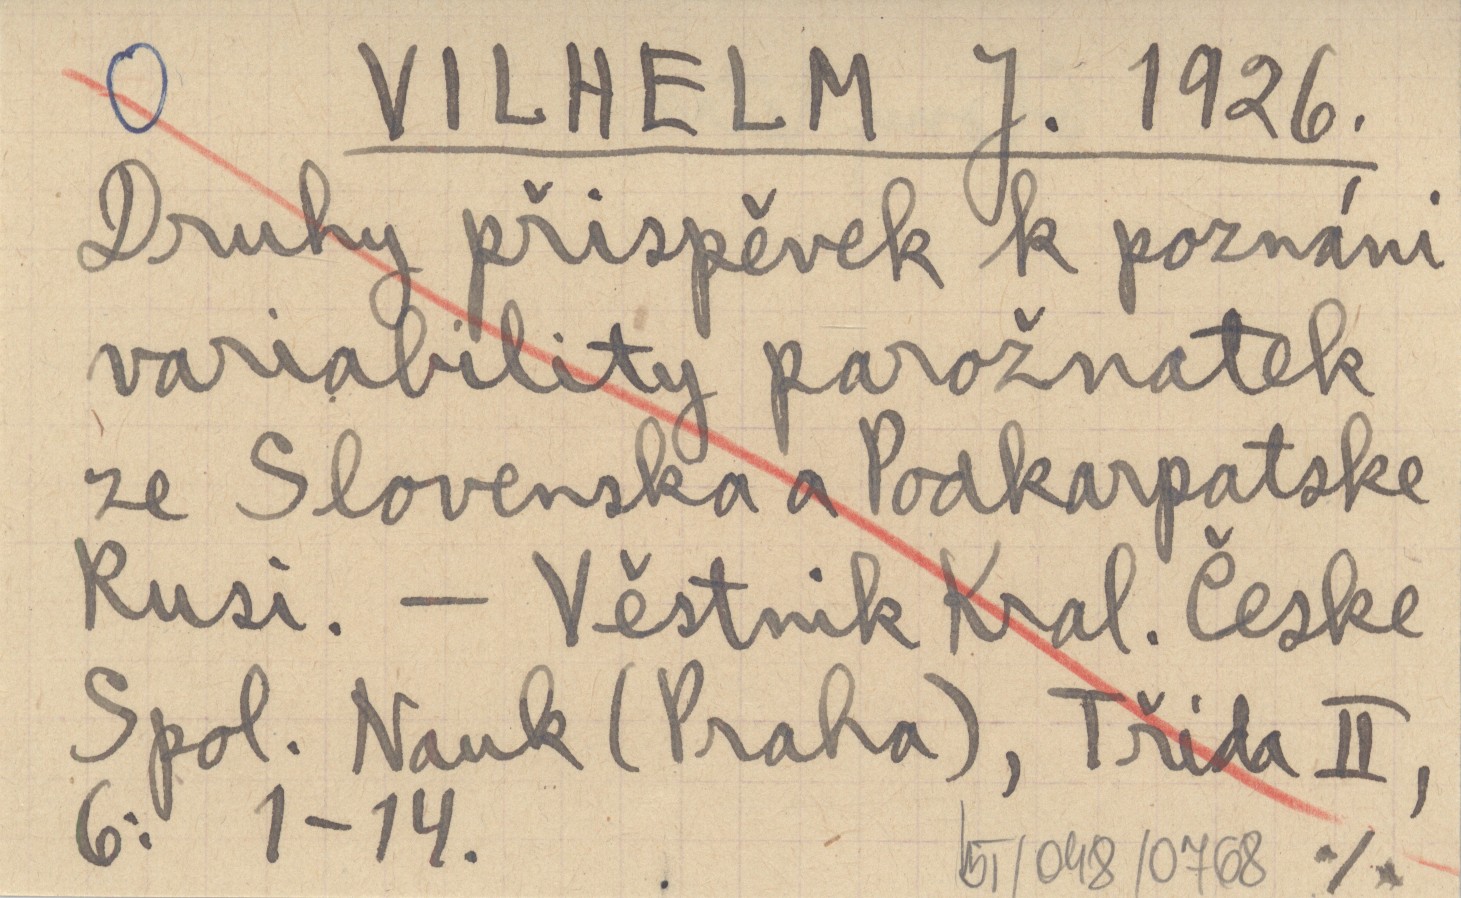 VILHELM J. 1926.
Druhy přispěvek k poznáni
variability parožnatek
ze Slovenska a Podkarpatske
Rusi. — Věstnik Kral. Česke
Spol. Nauk (Praha), Třida II,
6: 1-14.
/048/0768 ./.